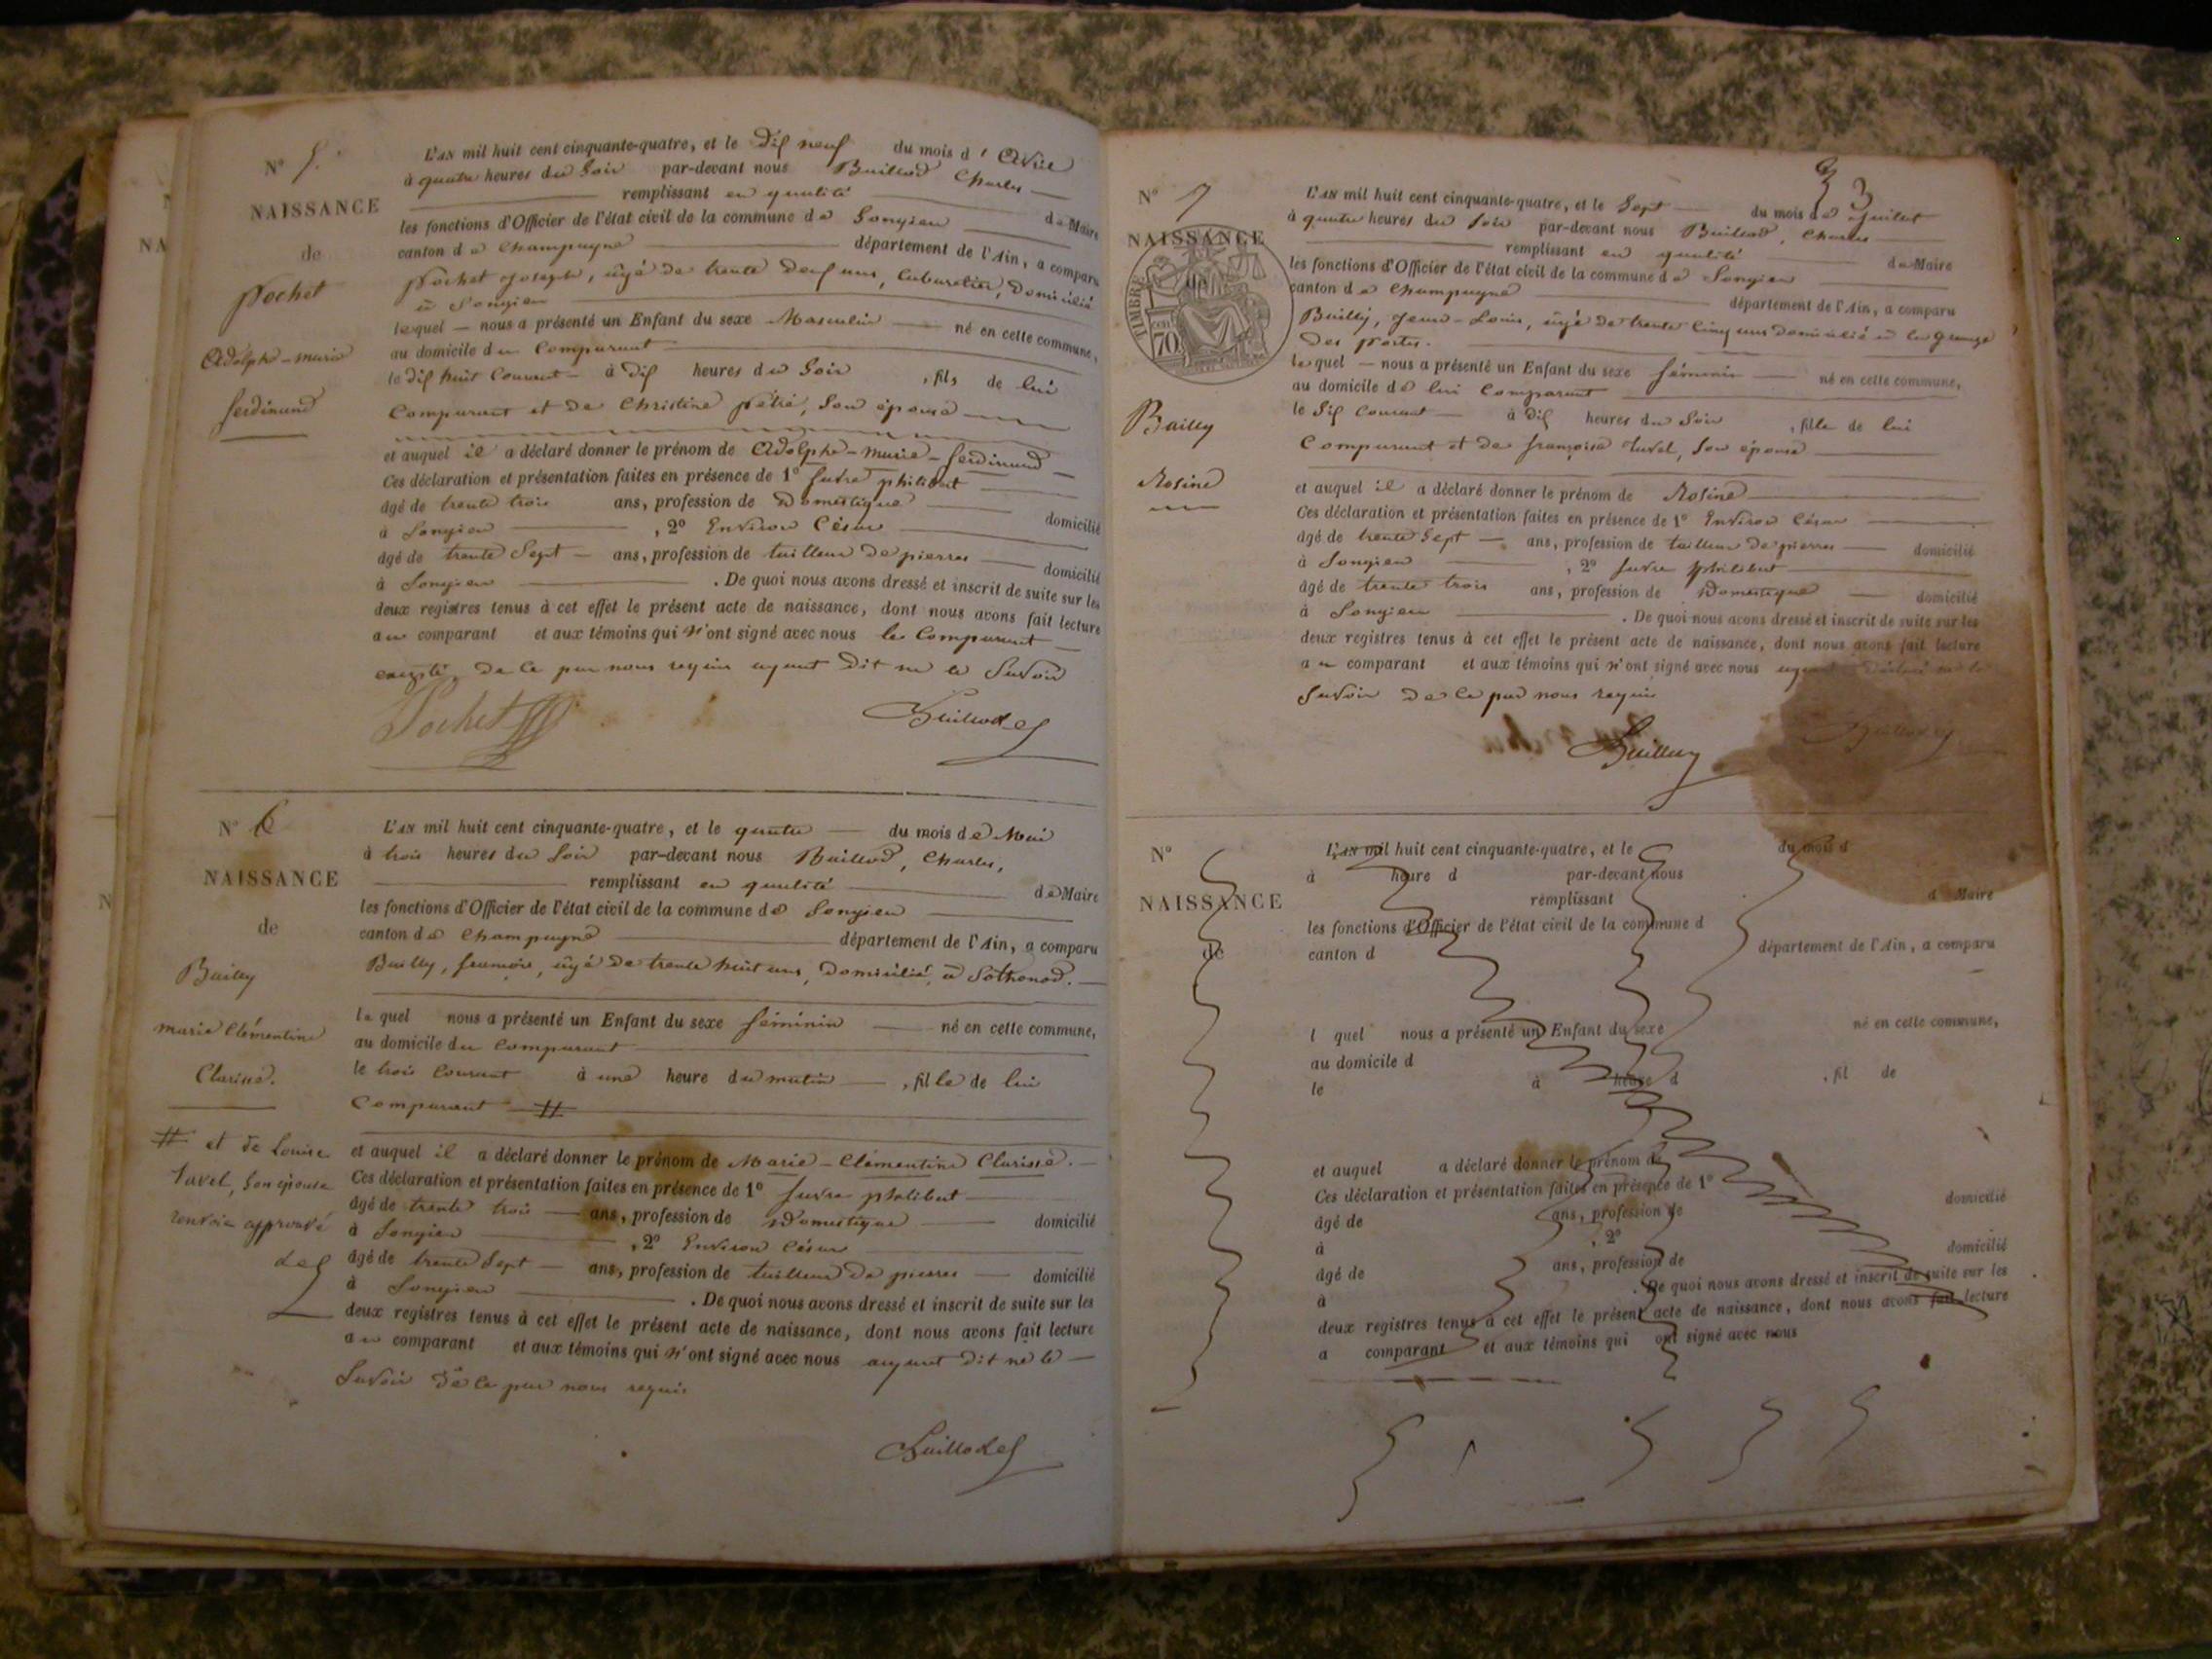 N° 5.
NAISSANCE
de
Pochet
Adolphe-marie
ferdinand
L'AN mil huit cent cinquante-quatre, et le Dix neuf du mois d'Avril
à quatre heures du Soir par-devant nous Buillod Charles
remplissant en qualité de Maire
les fonctions d'Officier de l'état civil de la commune de Songieu
canton de Champagne département de l'Ain, a comparu
Pochet Joseph, âgé de trente deux ans, Cabaretier, Domicilié
à Songieu
lequel nous a présenté un Enfant du sexe Masculin né en cette commune,
au domicile du Comparant
le dix huit Courant à dix heures du Soir, fils de lui
Comparant et de Christine , Son épouse
et auquel il a déclaré donner le prénom de Adolphe-Marie-ferdinand
Ces déclaration et présentation faites en présence de 1° philibert
âgé de trente trois ans, profession de Domestique domicilié
à Songieu, 2° Environ César
âgé de trente Sept ans, profession de tailleur De pierres domicilié
à Songieu. De quoi nous avons dressé et inscrit de suite sur les
deux registres tenus à cet effet le présent acte de naissance, dont nous avons fait lecture
au comparant et aux témoins qui n'ont signé avec nous le Comparant
excepté, De Ce par nous requis ayant Dit ne le Savoir
Pochet Buillod
N° 6
NAISSANCE
de
Bailly
marie Clémentine
Clarisse.
# et de Louise
tavel, Son épouse
renvoi approuvé
L'AN mil huit cent cinquante-quatre, et le quatre du mois de Mai
à trois heures du Soir par-devant nous Buillod, Charles,
remplissant en qualité de Maire
les fonctions d'Officier de l'état civil de la commune de Songieu
canton de Champagne département de l'Ain, a comparu
Bailly, , âgé De trente huit ans, Domicilié, à Sothonod.
lequel nous a présenté un Enfant du sexe féminin né en cette commune,
au domicile du Comparant
le trois Courant à une heure du matin, fille de lui
Comparant #
et auquel il a déclaré donner le prénom de Marie-Clémentine Clarisse.
Ces déclaration et présentation faites en présence de 1° philibert
âgé de trente trois ans, profession de Domestique domicilié
à Songieu, 2° Environ César
âgé de trente Sept ans, profession de tailleur De pierres domicilié
à Songieu. De quoi nous avons dressé et inscrit de suite sur les
deux registres tenus à cet effet le présent acte de naissance, dont nous avons fait lecture
au comparant et aux témoins qui n'ont signé avec nous ayant Dit ne le
Savoir De Ce par nous requis
Buillod
3
3
N° 7
NAISSANCE
de
TIMBRE
70
Bailly
Rosine
L'AN mil huit cent cinquante-quatre, et le Sept du mois de Juillet
à quatre heures du Soir par-devant nous Buillod, Charles
remplissant en qualité de Maire
les fonctions d'Officier de l'état civil de la commune de Songieu
canton de Champagne département de l'Ain, a comparu
Bailly, Jean-Louis, âgé De trente Cinq ans Domicilié à la grange
Des portes.
lequel nous a présenté un Enfant du sexe féminin né en cette commune,
au domicile de lui Comparant
le Six Courant à Dix heures du Soir, fille de lui
Comparant et De françoise tavel, Son épouse
et auquel il a déclaré donner le prénom de Rosine
Ces déclaration et présentation faites en présence de 1° Environ César
âgé de trente Sept ans, profession de tailleur De pierres domicilié
à Songieu, 2° philibert
âgé de trente trois ans, profession de Domestique domicilié
à Songieu. De quoi nous avons dressé et inscrit de suite sur les
deux registres tenus à cet effet le présent acte de naissance, dont nous avons fait lecture
au comparant et aux témoins qui n'ont signé avec nous ayant Déclaré ne le
Savoir De Ce par nous requis
Bailly Buillod
N°
NAISSANCE
de
L'AN mil huit cent cinquante-quatre, et le du mois d
à heure d par-devant nous
remplissant d Maire
les fonctions d'Officier de l'état civil de la commune d
canton d département de l'Ain, a comparu
l quel nous a présenté un Enfant du sexe né en cette commune,
au domicile d
le à heure d, fil de
et auquel a déclaré donner le prénom de
Ces déclaration et présentation faites en présence de 1°
âgé de ans, profession de domicilié
à, 2°
âgé de ans, profession de domicilié
à. De quoi nous avons dressé et inscrit de suite sur les
deux registres tenus à cet effet le présent acte de naissance, dont nous avons fait lecture
a comparant et aux témoins qui ont signé avec nous